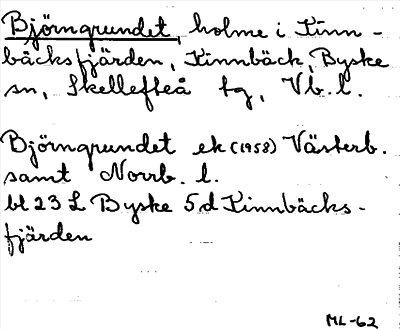 Björngrundet, holme i Kinn-
bäcksfjärden, Kinnbäck, Byske
sn, Skellefteå tg, Vb. l.
Björngrundet ek (1958) Västerb.
samt Norrb. l.
bl 23 L Byske 5d Kinnbäcks-
fjärden
ML-62